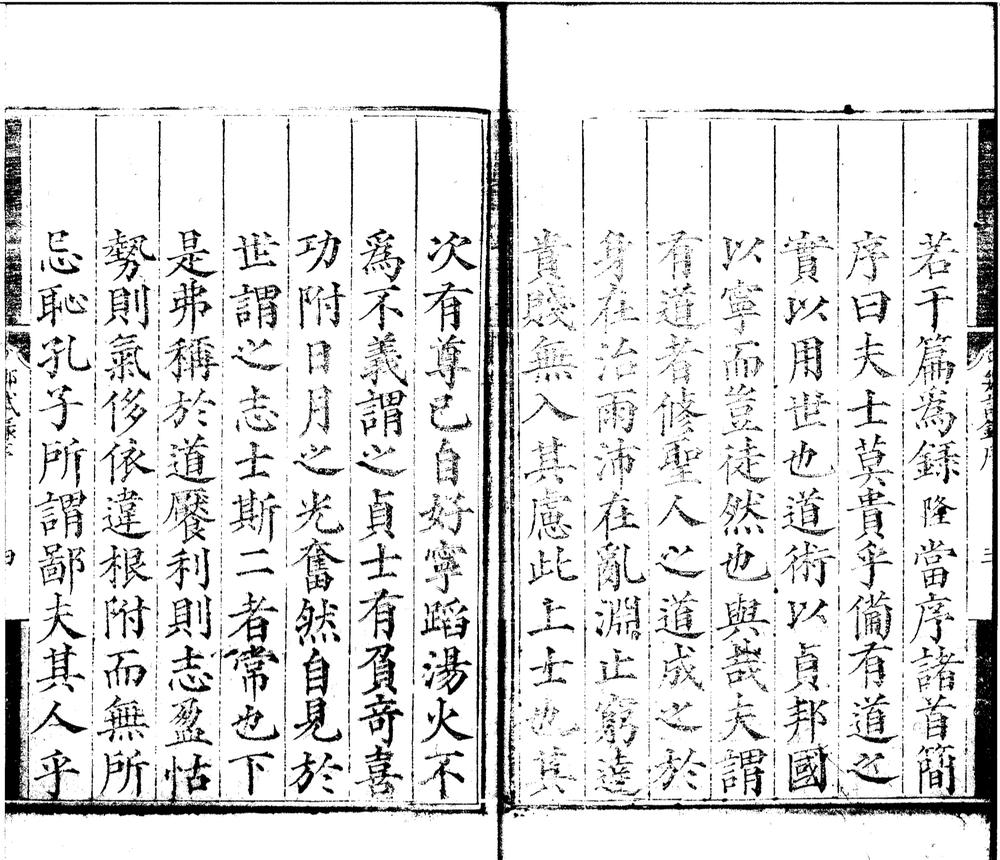 若干篇為錄隆當序諸首簡
序曰夫士莫貴乎備有道之
實以用世也道術以貞邦國
以寧而豈徒然也與哉夫謂
有道者修聖人之道成之於
身在治雨沛在亂淵止窮達
貴賤無入其慮此上士也其
次有尊已自好寧蹈湯火不
為不義謂之貞士有負奇喜
功附日月之光奮然自見於
世謂之志士斯二者常也下
是弗稱於道饜利則志盈怙
勢則氣侈依違根附而無所
忌恥孔子所謂鄙夫其人乎
四